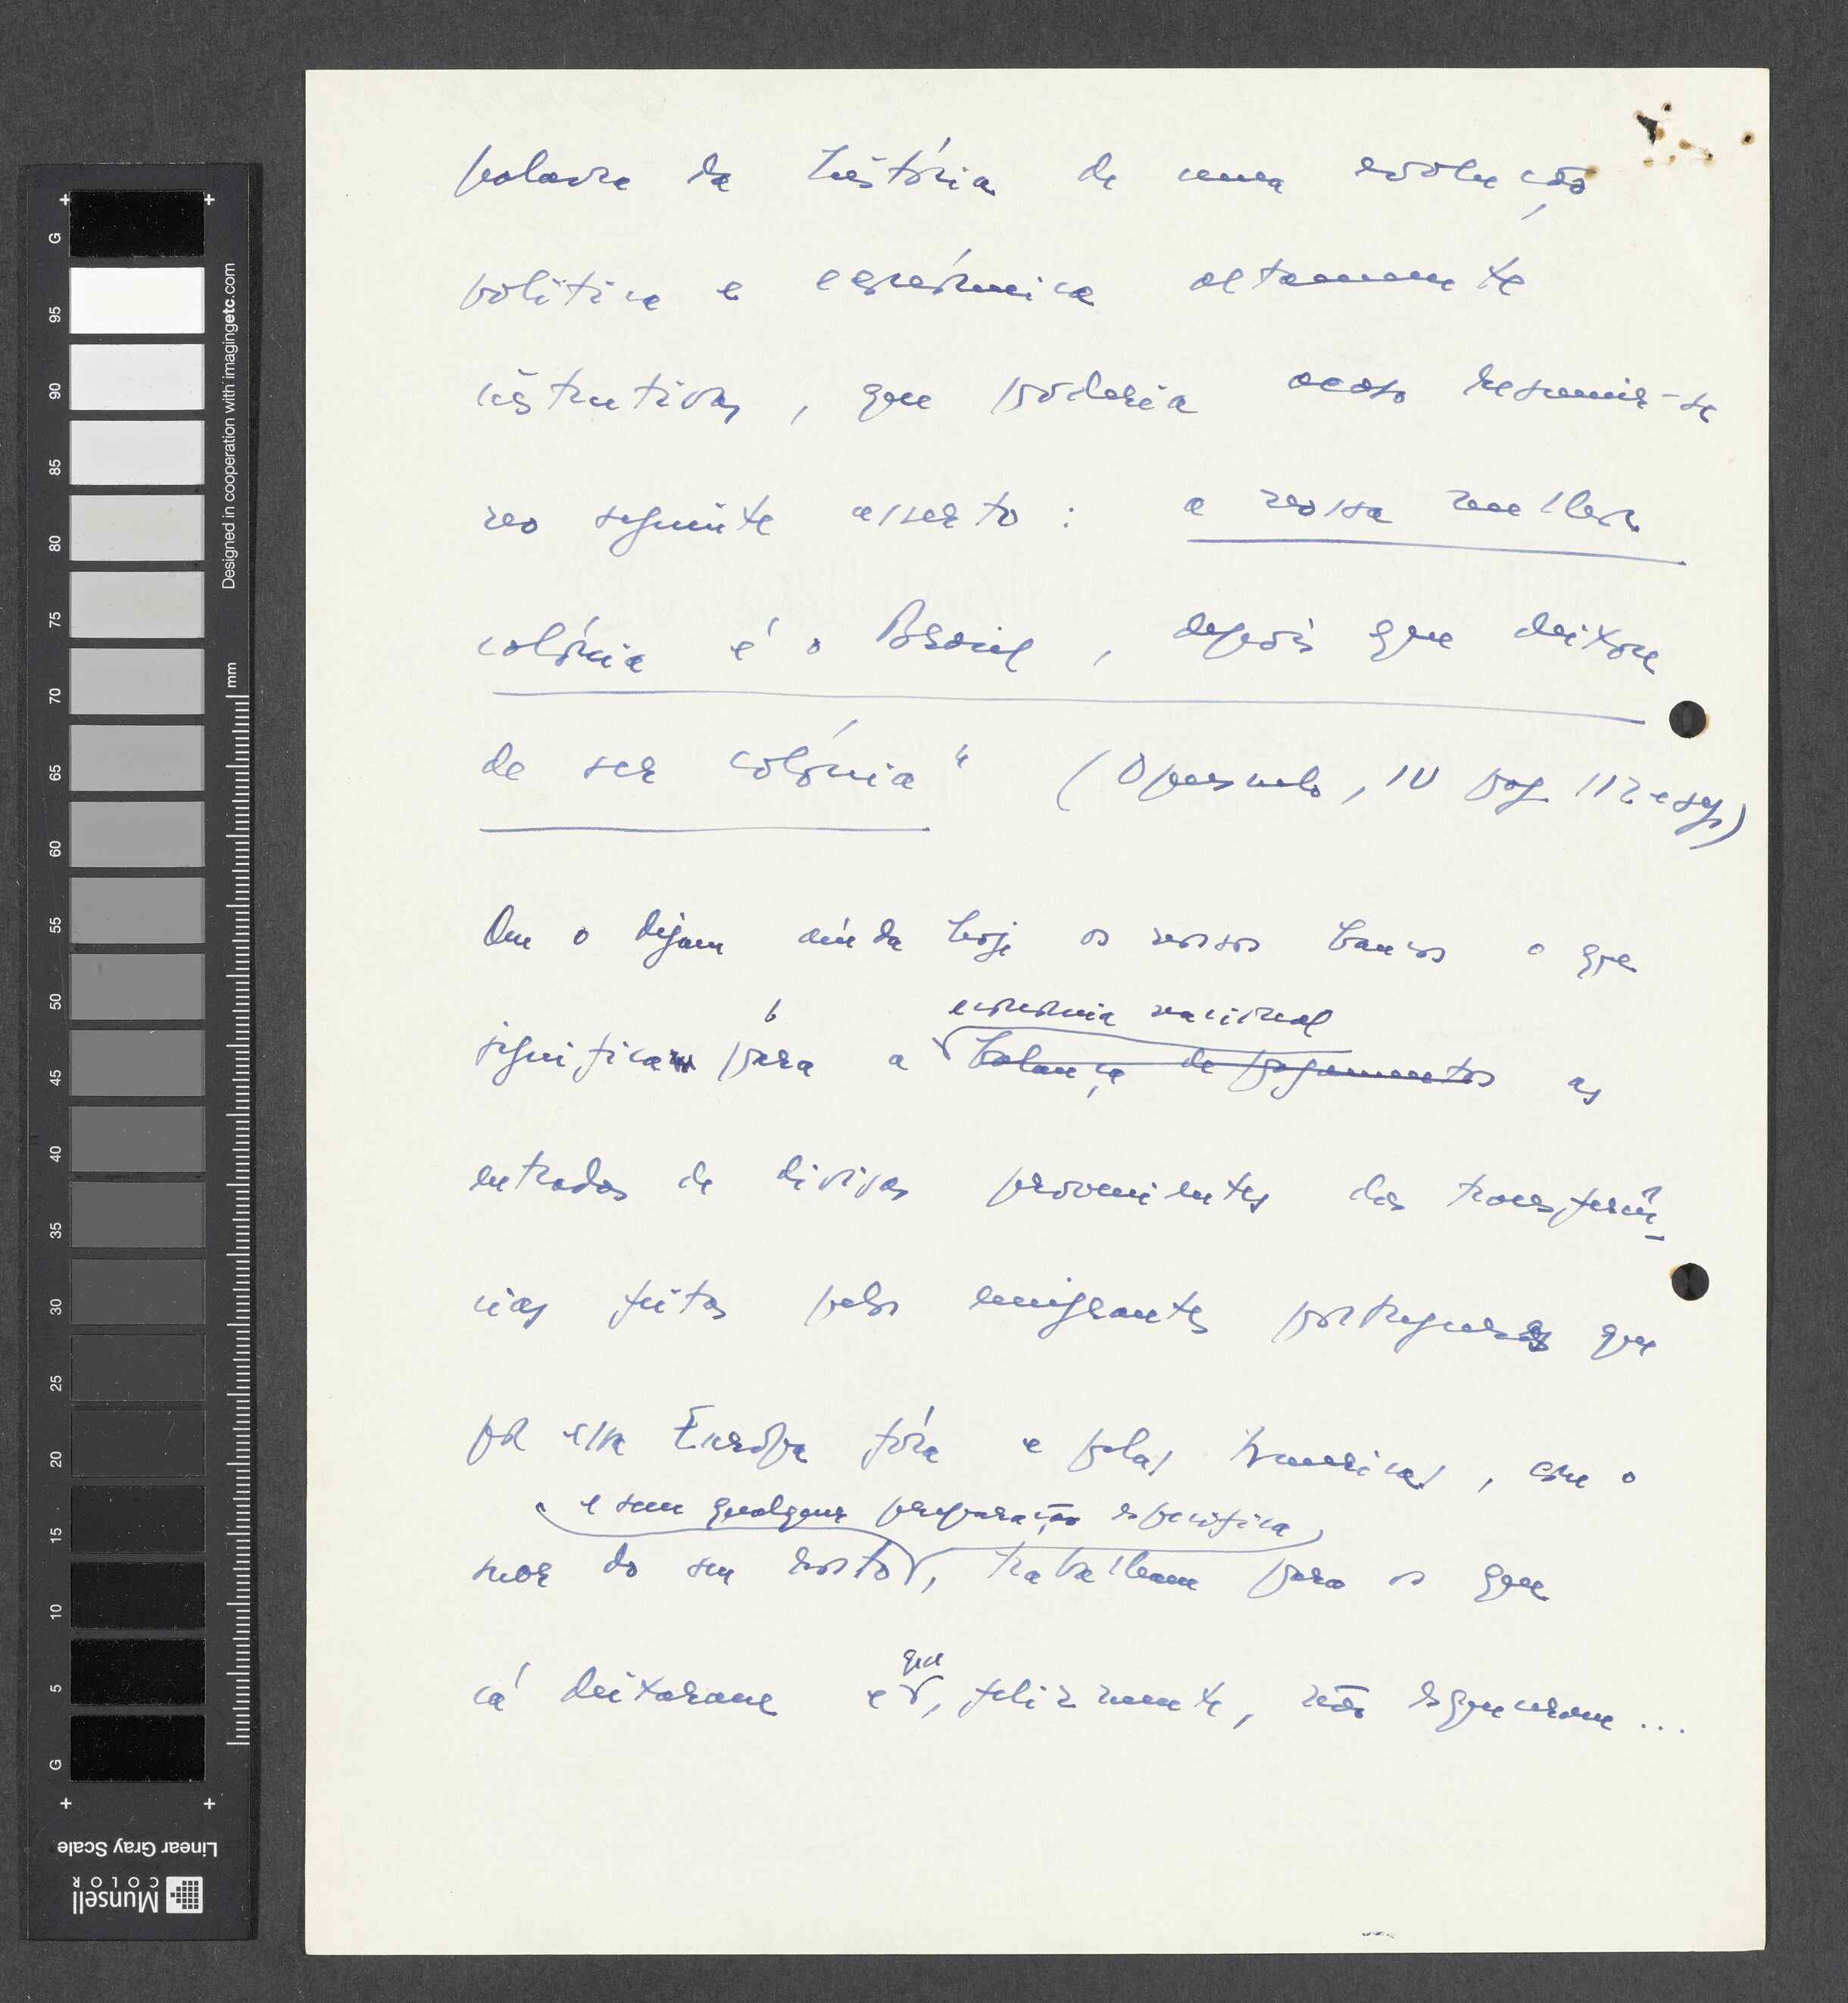 palavra da história de uma evolução
política e económica altamente
instrutiva, que poderia acaso resumir-se
no seguinte asserto: a nossa melhor
colónia é o Brasil, depois que deixou
de ser colónia" (Opúsculo, IV pag 112 e sgs)
Que o digam ainda hoje os nossos bancos o que
economia nacional
significam para a balança de pagamentos as
entradas de divisas provenientes das transferên-
cias feitas pelos emigrantes portugueses que
por essa Europa fóra e pelas Américas, com o
e sem qualquer preparação específica
suor do seu rosto, trabalham para os que
que
cá deixaram e, felizmente, não esqueceram...
G
95
90
85
80
75
70
65
60
55
50
45
40
35
30
25
20
15
10
5
G
mm
Designed in cooperation with imagingetc.com
Linear Gray Scale
Munsell
COLOR